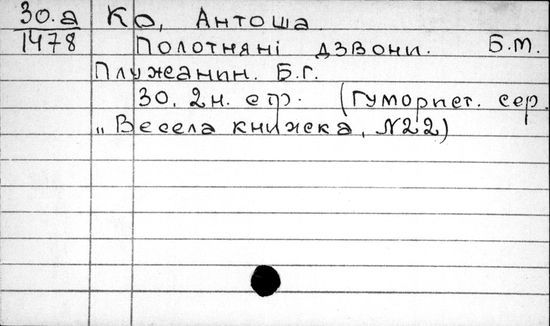 30.а Ко, Антоша.
1478 Полотняні дзвони. Б.м.
Плужанин. Б.г.
30, 2н. стр. (Гуморист. сер.
„Весела книжска, №22)